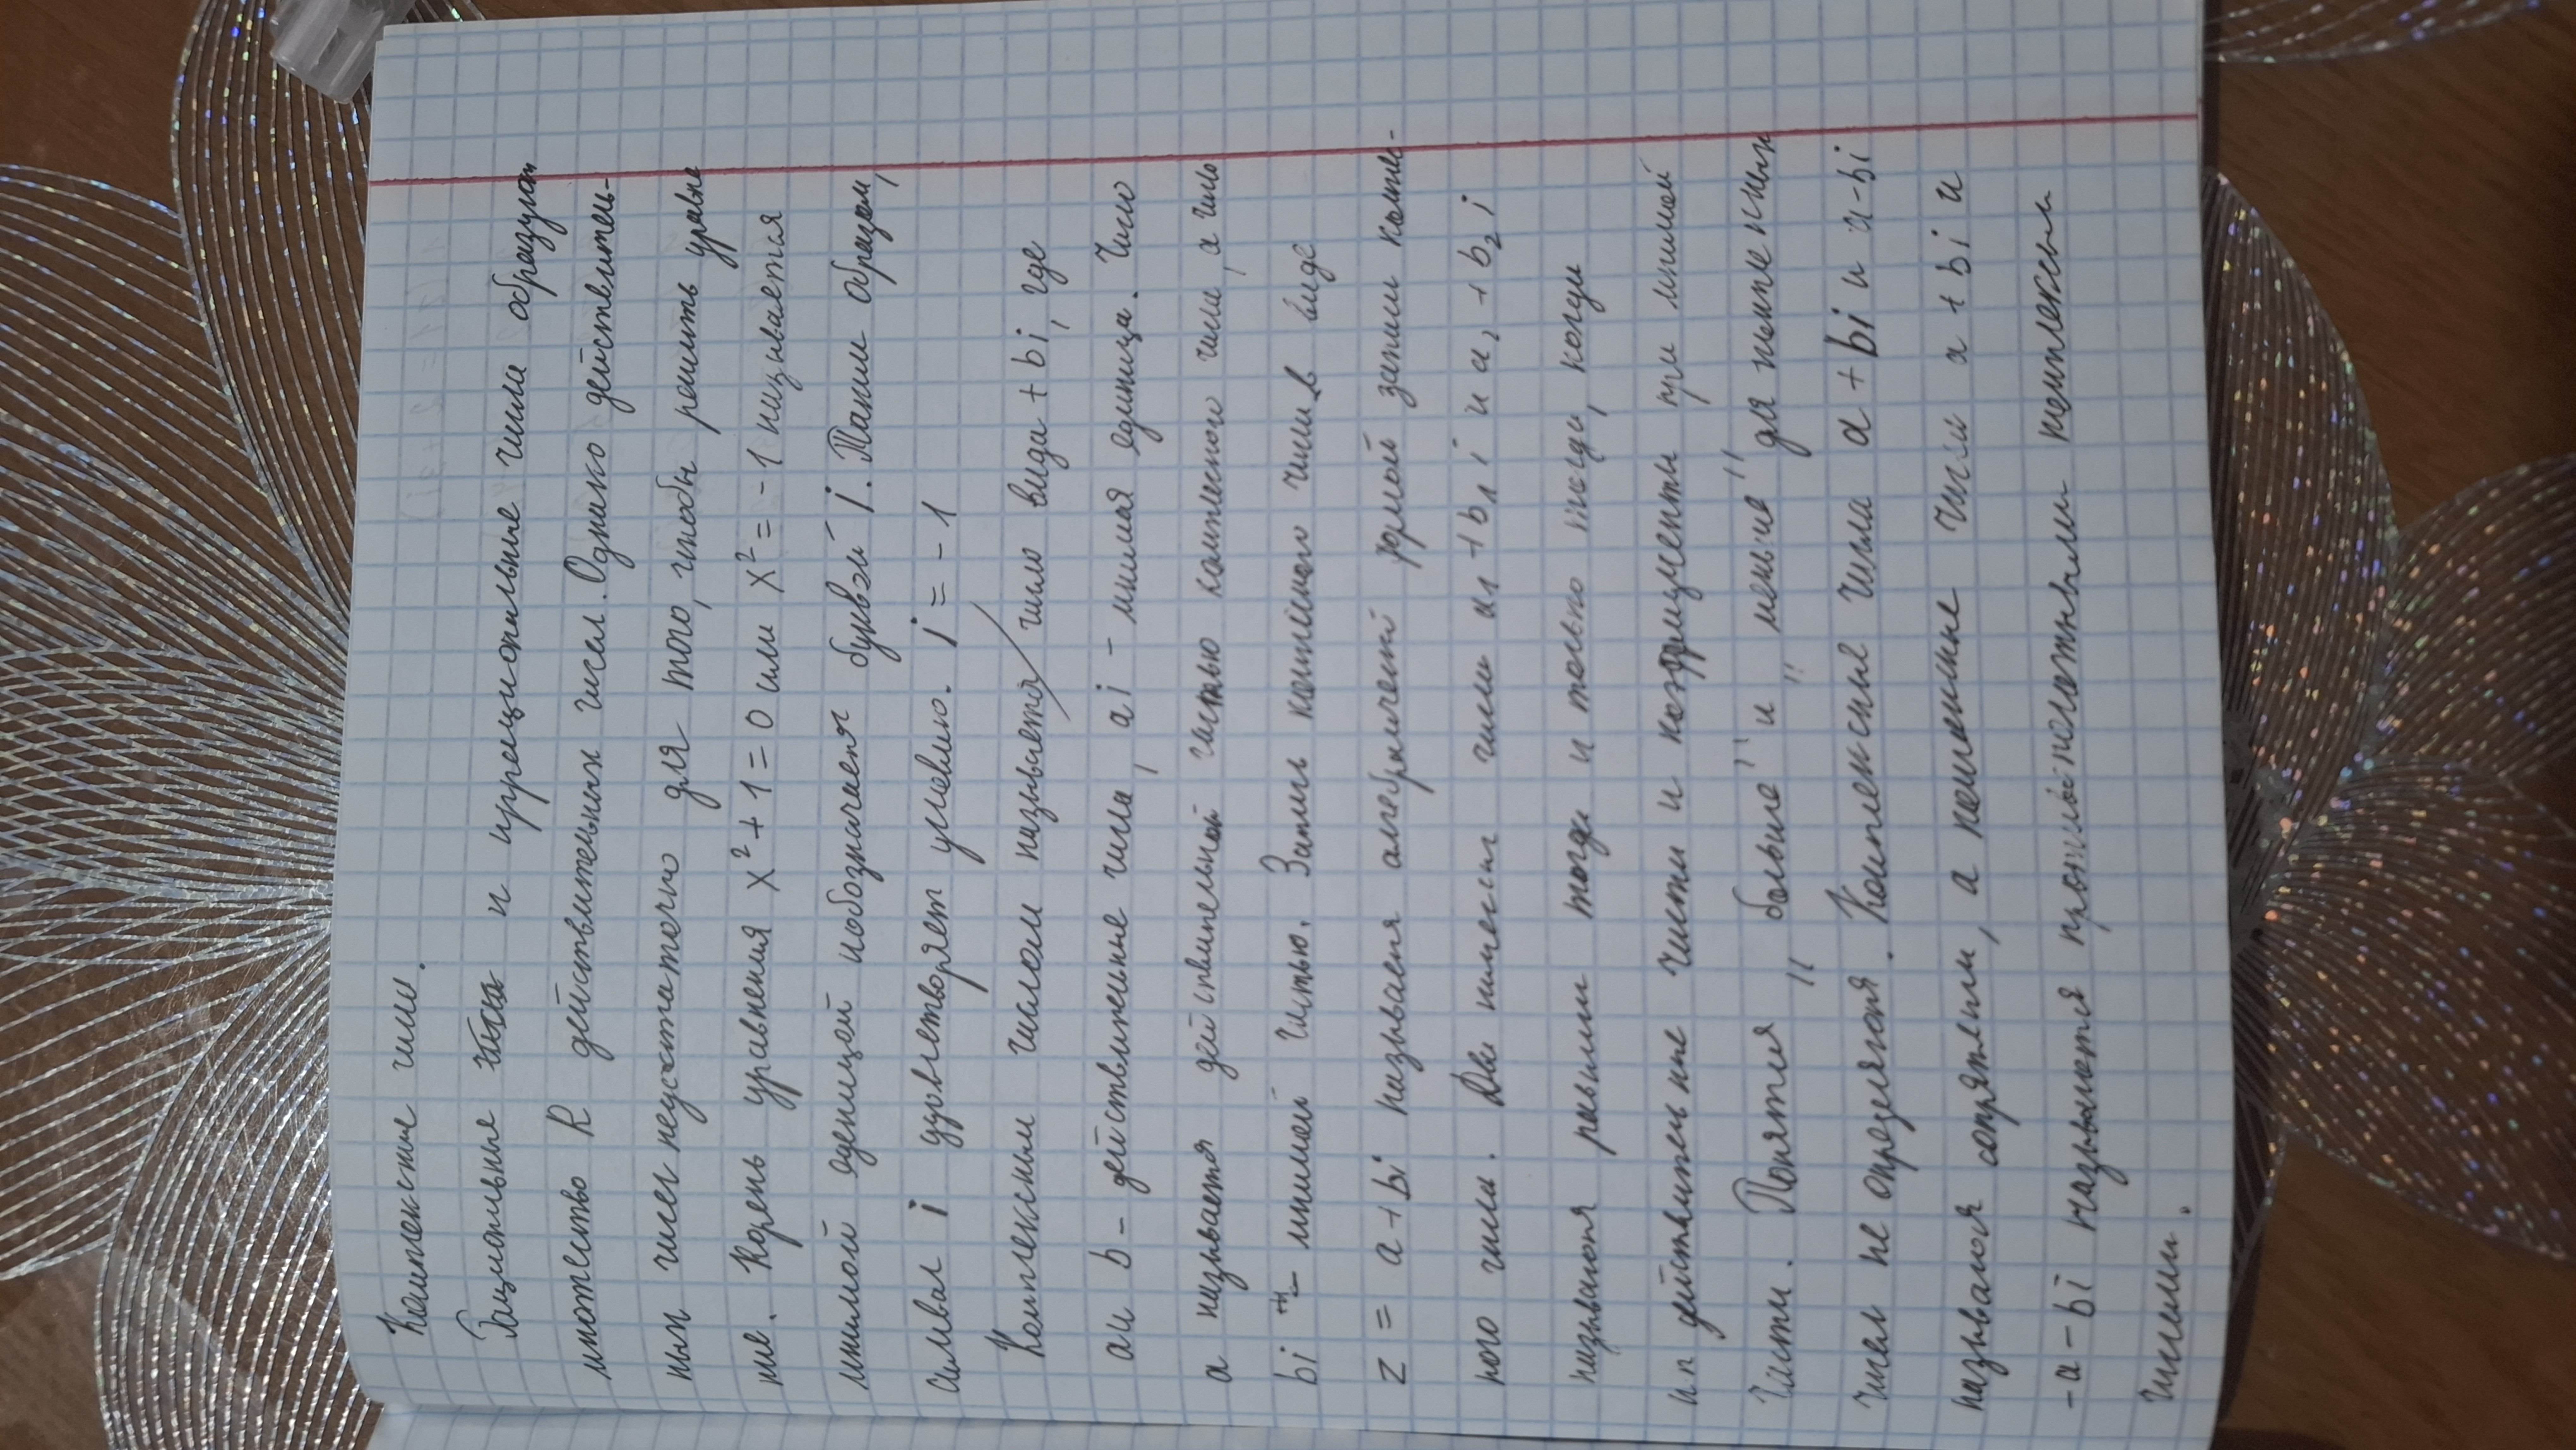 Комплексные числа.
Рациональные и иррациональные числа образуют
множество R действительных чисел. Однако действитель-
ных чисел недостаточно для того, чтобы решить уравне
ние. Корень уравнения x² + 1 = 0 или x² = -1 называется
мнимой еденицей и обозначается буквой i. Таким образом,
символ i удовлетворяет условию. i = -1
Комплексным числом называется число вида a + bi, где
a и b - действительные числа, a i - мнимая единица. Число
a называется действительной частью комплексного числа, а число
bi - мнимой частью. Запись комплексного числа в виде
z = a + bi называется алгебраической формой записи компле-
ного числа. Два комплексных числа a₁ + b₁ i и a₂ + b₂ i
называются равными тогда и только тогда, когда
их действительные части и коэффициенты при мнимой
части. Понятия "больше" и "меньше" для комплексных
чисел не определяются. Комплексные числа a + bi и a - bi
называются сопряжёнными, а комплексные числа a + bi и
-a - bi называются противоположными комплексными
числами.